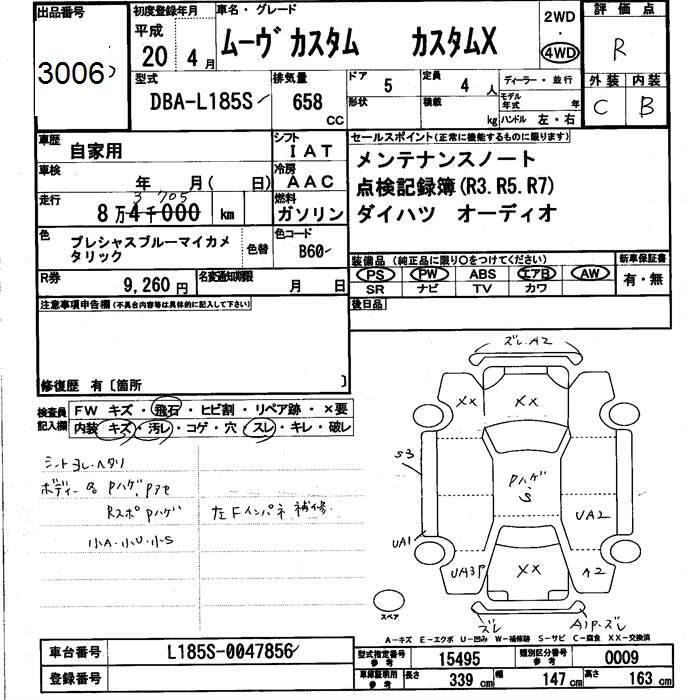 出品番号
3006
初度登録年月
平成
20 4月
車名・グレード
ムーヴ カスタム カスタムX
2WD
・
4WD
評価点
R
型式
DBA-L185S
排気量
658
CC
ドア
5
定員
4人
形状
積載
kg
ディーラー・並行
モデル
年式
年
ハンドル 左・右
外装
C
内装
B
車歴
自家用
シフト
IAT
車検
年 月( 日)
冷房
AAC
走行
3 705
8万4千000 km
燃料
ガソリン
色
プレシャスブルーマイカメ
タリック
色替
色コード
B60
R券
9,260円
名変通知期限
月 日
セールスポイント(正常に機能するものに限ります)
メンテナンスノート
点検記録簿(R3.R5.R7)
ダイハツ オーディオ
装備品 (純正品に限り○をつけてください)
PS PW ABS エアB AW
SR ナビ TV カワ
新車保証書
有・無
後日品
注意事項申告欄(不具合内容等は具体的に記入して下さい)
修復歴 有〔箇所 〕
検査員
記入欄
FW キズ・飛石・ヒビ割・リペア跡・×要
内装 キズ・汚レ・コゲ・穴・スレ・キレ・破レ
シートヨレ・ヘタリ
Pハゲ
RスポPハゲ
小A・小U・小S
左Fインパネ補修
ズレ.A2
XX
XX
S3
Pハゲ
S
UA2
UA1
UA3P
XX
A2
ズレ
A1P.ズレ
スペア
A-キズ E-エクボ U-凹み W-補修跡 S-サビ C-腐食 XX-交換済
車台番号
L185S-0047856
登録番号
型式指定番号
参考
15495
類別区分番号
参考
0009
車庫証明用
参考
長さ
339 cm
幅
147 cm
高さ
163 cm